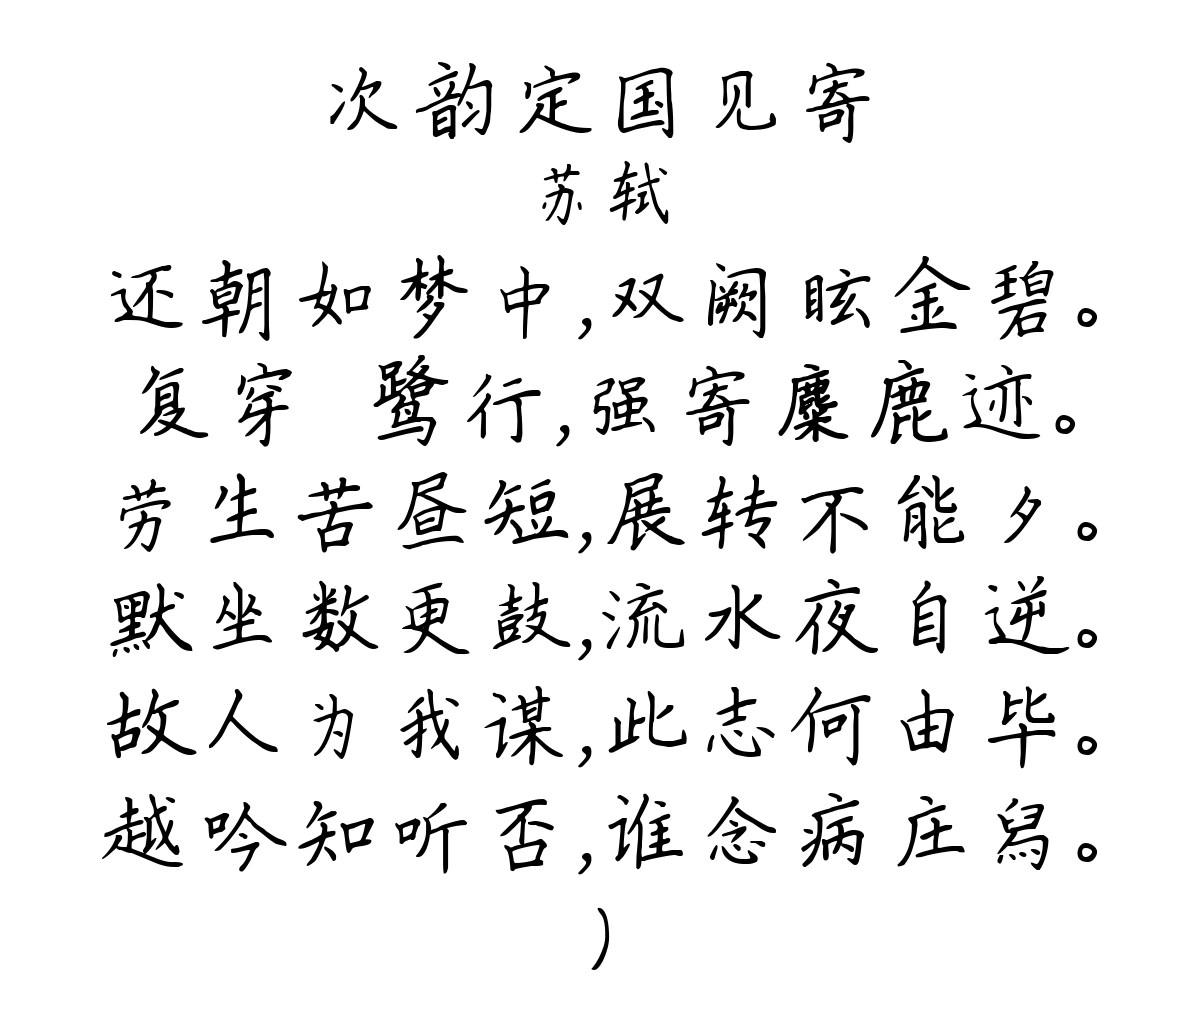 次韵定国见寄
苏轼
还朝如梦中,双阙眩金碧。
复穿 鹭行,强寄麋鹿迹。
劳生苦昼短,展转不能夕。
默坐数更鼓,流水夜自逆。
故人为我谋,此志何由毕。
越吟知听否,谁念病庄舄。
)